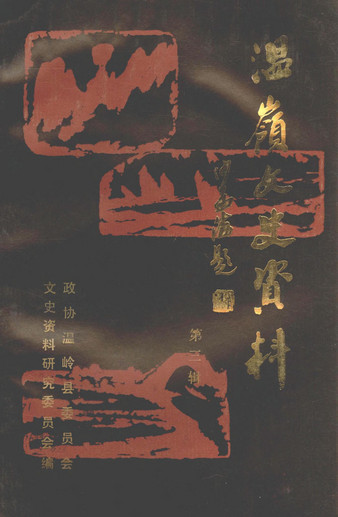 温嶺文史资料
第三辑
政协温岭县委员会
文史资料研究委员会编